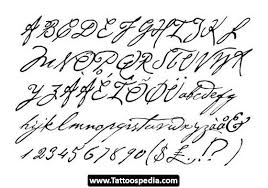 ABCDEFGHIJKL
MNOPQRSTUVWX
YZÀÅÉÎÕØÜabcdefg
hijklmnopqrstuvwxyzàå&
1234567890($£.,!?)
www.Tattoospedia.com